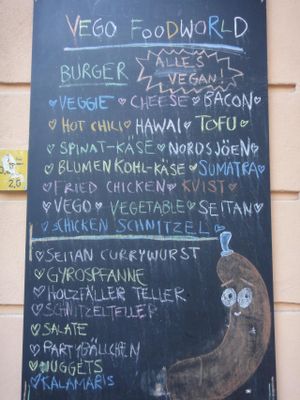 VEGO FOODWORLD
BURGER
ALLES VEGAN!
♡VEGGIE♡CHEESE♡BACON♡
♡HOT CHILI♡HAWAI♡TOFU♡
♡SPINAT-KÄSE♡NORDSJÖEN♡
♡BLUMENKOHL-KÄSE♡SUMATRA♡
♡FRIED CHICKEN♡KVIST♡
♡VEGO♡VEGETABLE♡SEITAN♡
♡CHICKEN SCHNITZEL♡
♡SEITAN CURRYWURST
♡GYROSPFANNE
♡HOLZFÄLLER TELLER
♡SCHNITZELTELLER
♡SALATE
♡PARTYBÄLLCHEN
♡NUGGETS
♡KALAMARIS
2,5